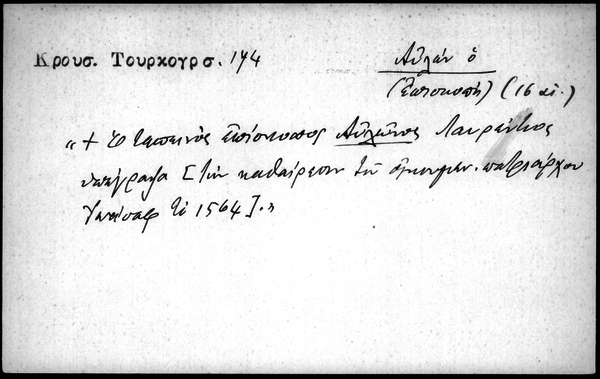 Κρουσ. Τουρκογρ. 174
Αὐλών ὁ
(Ἐπισκοπή) (16 αἰ.)
"+ Ὁ ταπεινὸς ἐπίσκοπος Αὐλῶνος Λαυρέντιος
ὑπέγραψα [τὴν καθαίρεσιν τοῦ οἰκουμεν. πατριάρχου
Ἰωάσαφ τῷ 1564]."